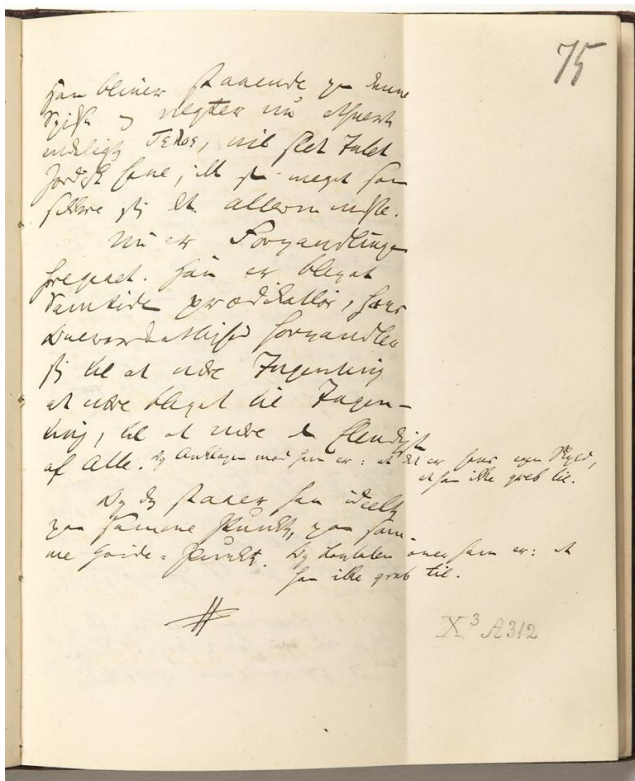 75
Han bliver staaende paa denne
Spidse og negter nu ethvert
endeligt Τελος, vil slet Intet
Jordisk have, ikke saa meget som
sikkre sig det allermindste.
Nu er Forvandlingen
foregaaet. Han er bleven
Samtidens
forvandler
sig til at være Ingenting
at være blevet til Ingen-
ting, til at være den Elendigste
af Alle. Og Anklagen mod ham er: at det er hans egen Skyld,
at han ikke greb til.
Og dog staaer han ideelt
paa samme Punkt, paa sam-
me Høide-Punkt. Og over ham er: at
han ikke greb til.
X³ A 312